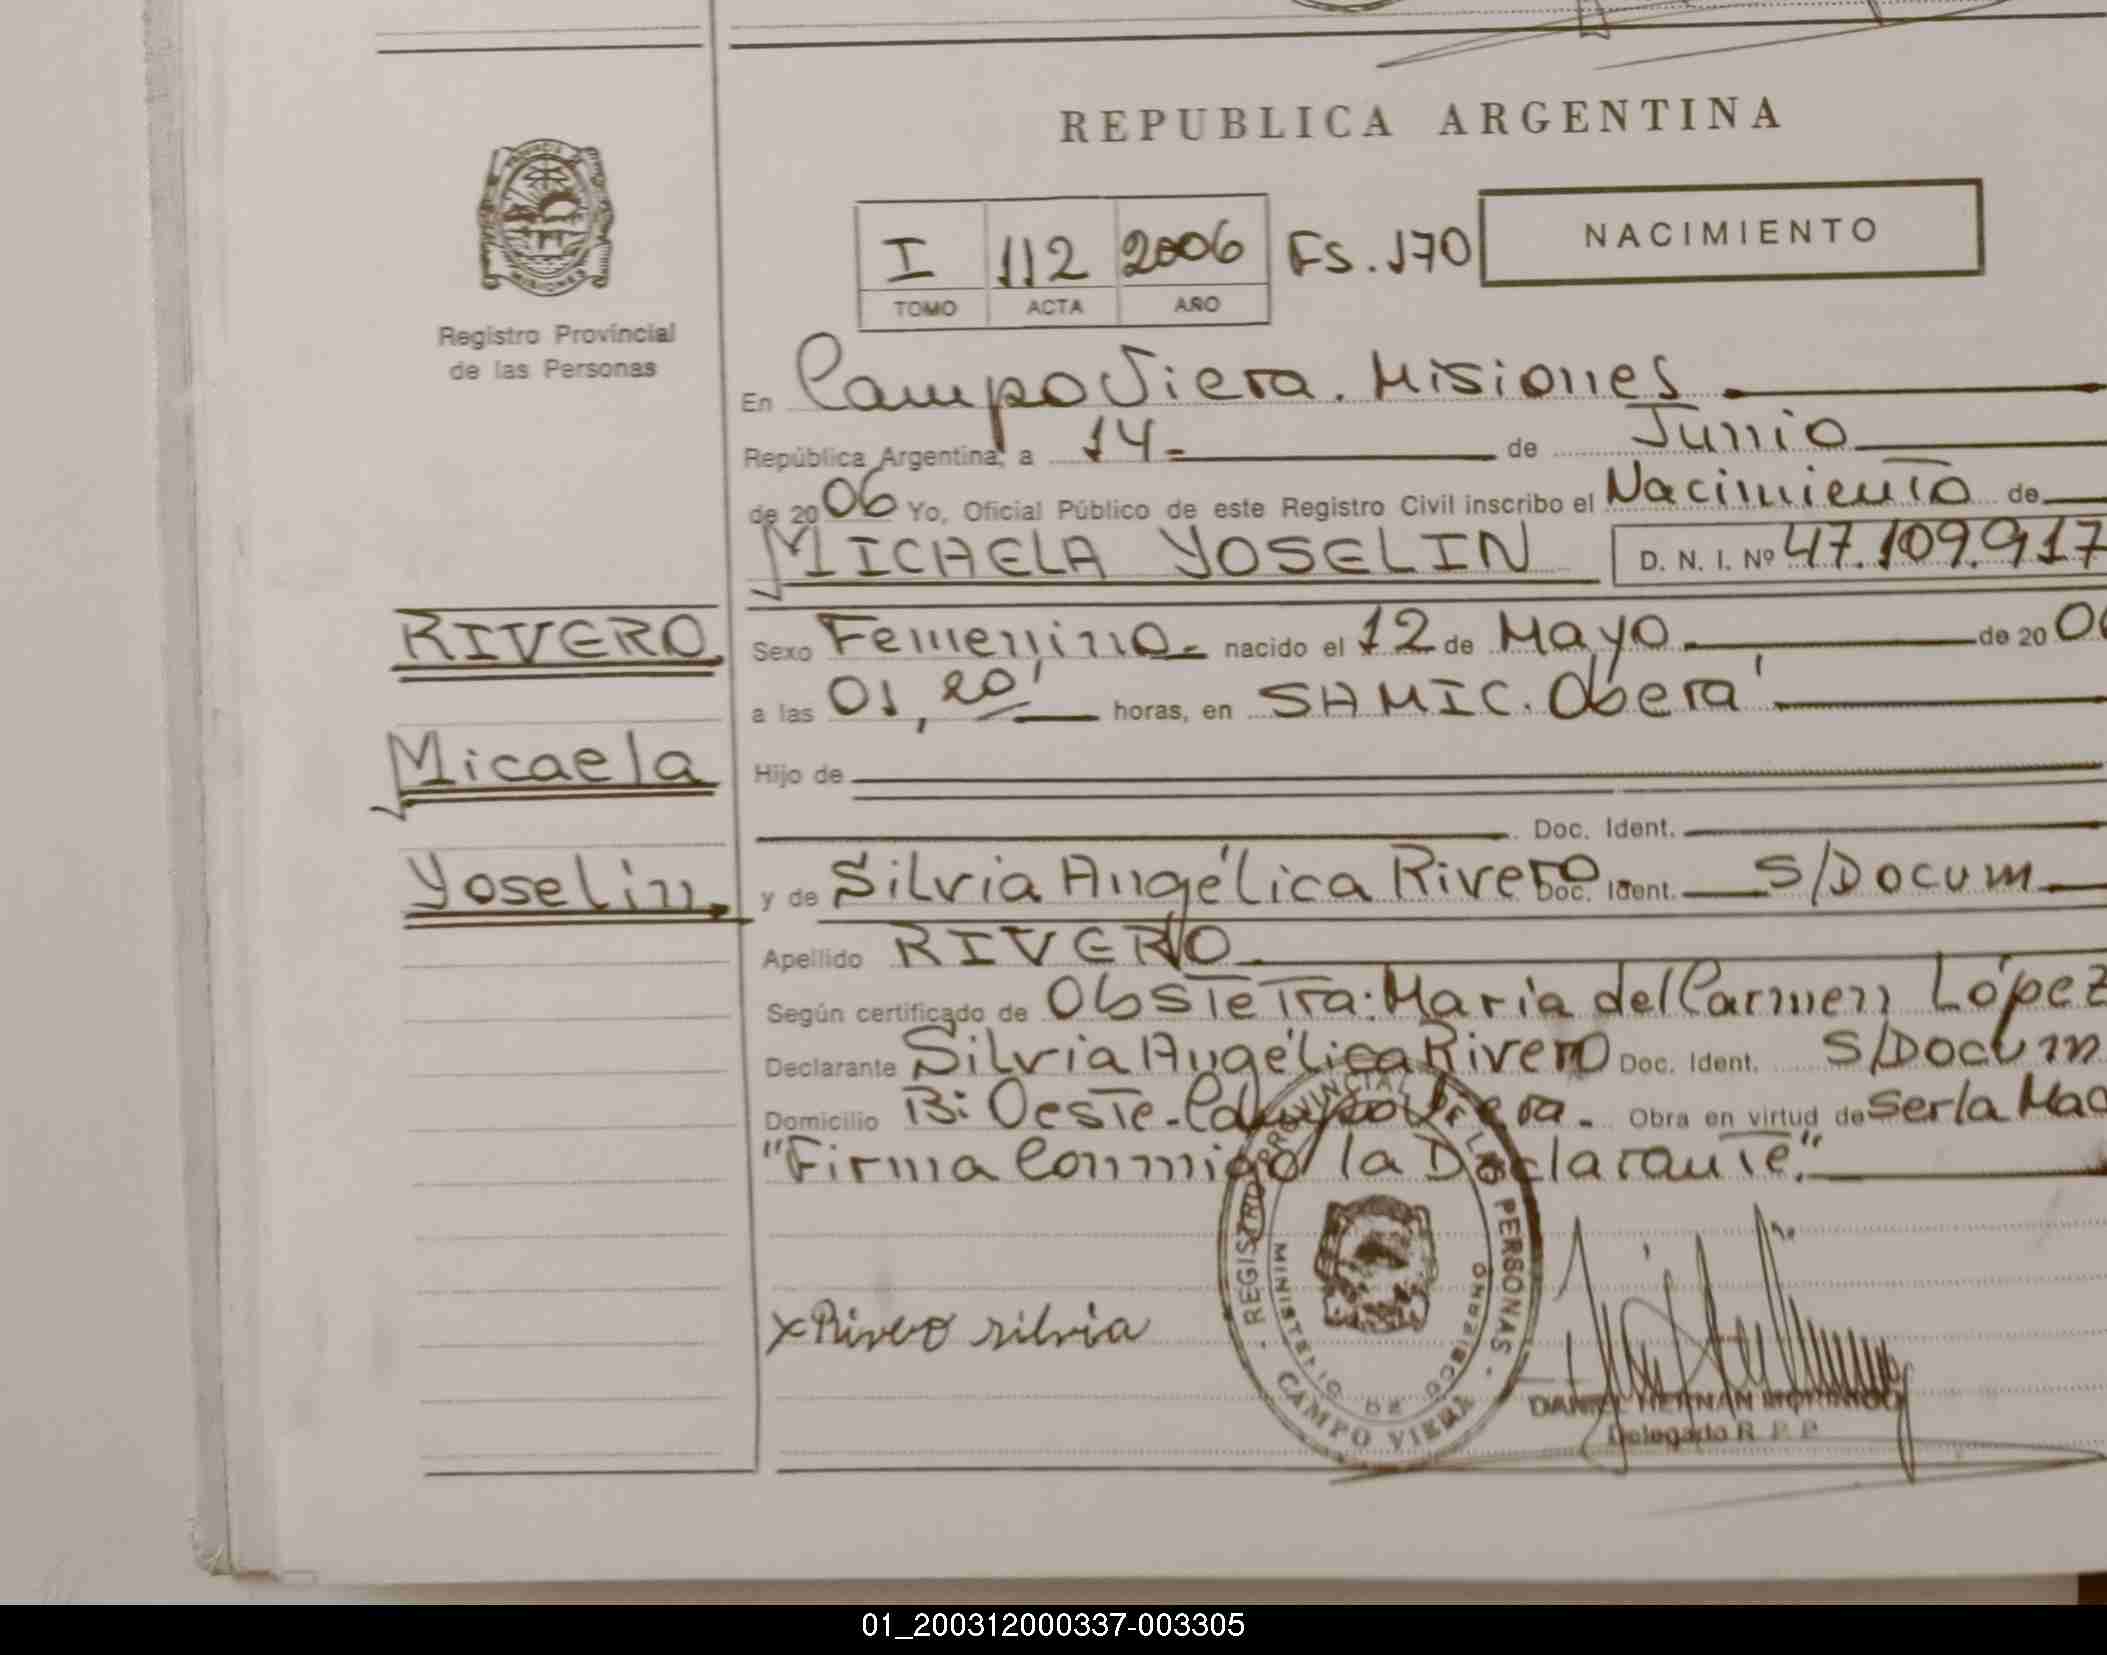 REPUBLICA ARGENTINA
NACIMIENTO
I 112 2006 Fs. 170
TOMO ACTA AÑO
Registro Provincial
de las Personas
En Campo Viera. Misiones
República Argentina, a 14 de Junio
de 2006 Yo, Oficial Público de este Registro Civil inscribo el Nacimiento de
MICAELA YOSELIN D. N. I. Nº 47.109.917
RIVERO
Micaela
Yoselin
Sexo Femenino nacido el 12 de Mayo de 20
a las 01,20' horas, en SAMIC. Oberá
Hijo de
Doc. Ident.
y de Silvia Angélica Rivero Doc. Ident. S/Docum
Apellido RIVERO
Según certificado de Obstetra: Maria del Carmen López
Declarante Silvia Angélica Rivero Doc. Ident. S/Docum
Domicilio B: Oeste-Campo Viera. Obra en virtud de Ser la
"Firma Conmigo la Declarante".
x Rivero silvia
REGISTRO PROVINCIAL DE LAS PERSONAS
MINISTERIO DE GOBIERNO
CAMPO VIERA
DANIEL HERNAN
Delegado R. P. P.
01_200312000337-003305